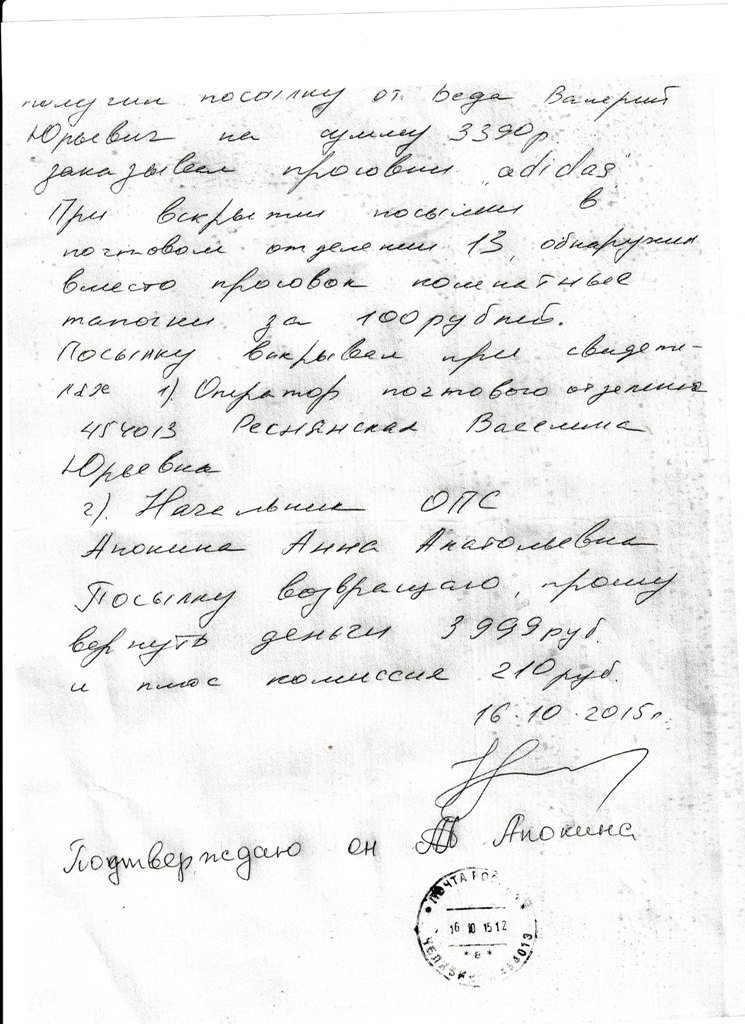 получил посылку от Беда Валерий
Юрьевич на сумму 3390р
заказывал кросовки "adidas"
При вскрытии посылки в
почтовом отделении 13, обнаружил
вместо кросовок комнатные
тапочки за 100 рублей.
Посылку вскрывал при свидете-
лях 1) Оператор почтового отделения
454013 Реснянская Васелина
Юрьевна
2). Начальник ОПС
Апокина Анна Анатольевна
Посылку возвращаю, прошу
вернуть деньги 3999руб.
и плюс комиссия 210руб.
16.10.2015г.
Подтверждаю Апокина
ПОЧТА РОССИИ
16 10 15 12
* в *
ЧЕЛЯБИНСК 454013